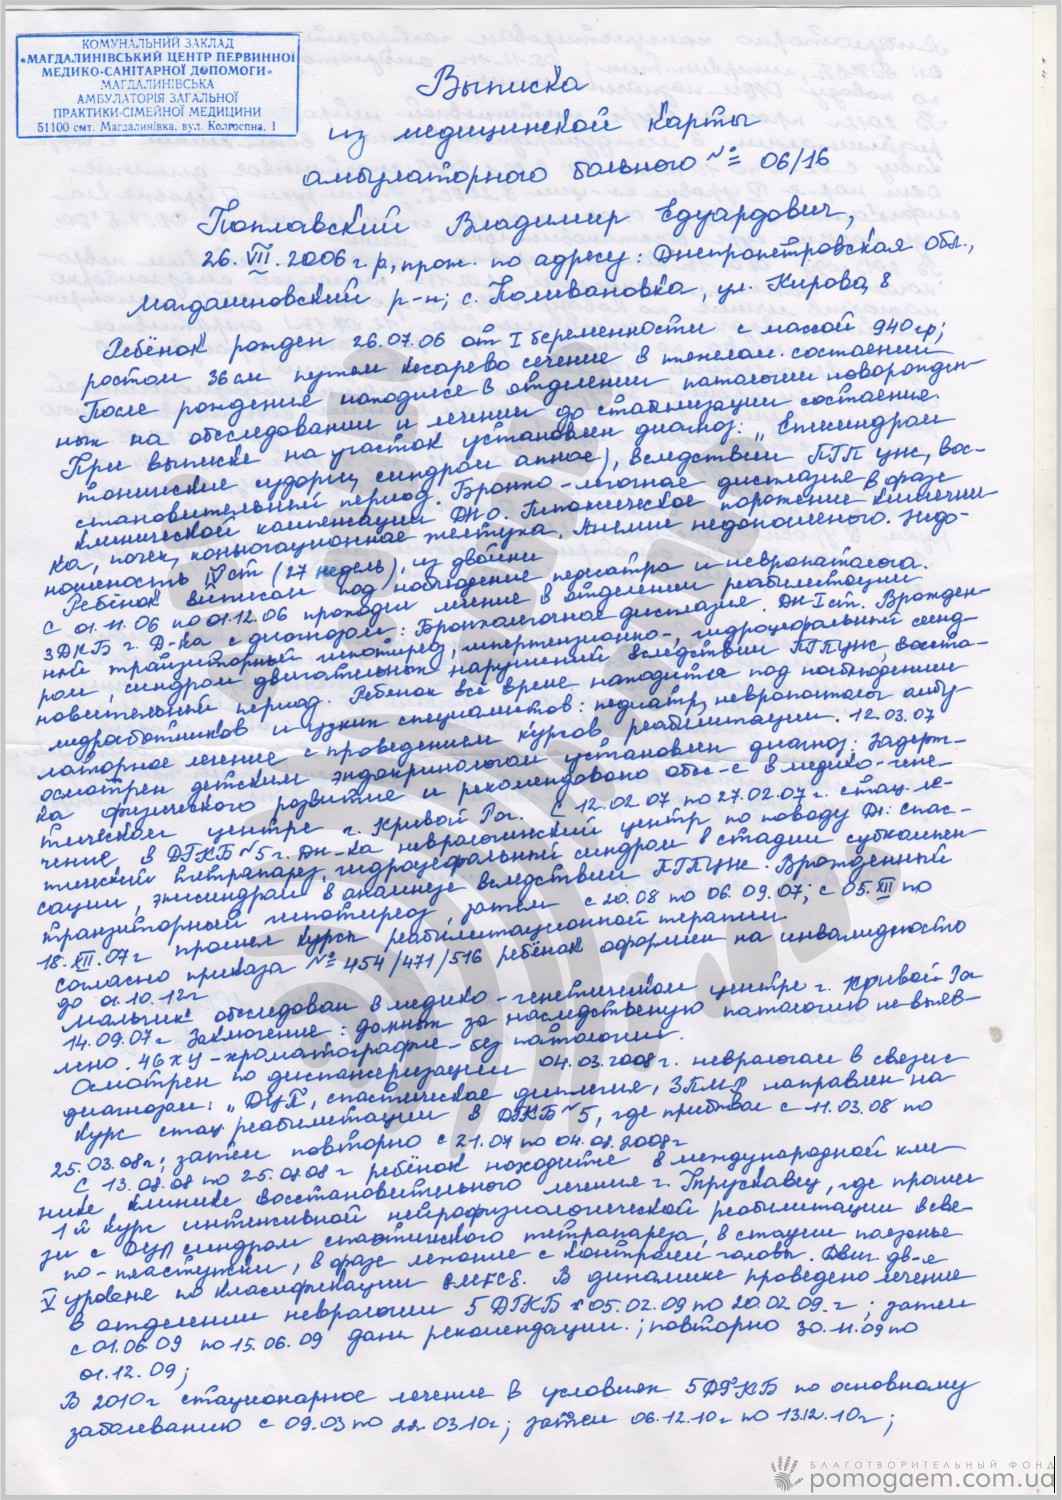 КОМУНАЛЬНИЙ ЗАКЛАД
«МАГДАЛИНІВСЬКИЙ ЦЕНТР ПЕРВИННОЇ
МЕДИКО-САНІТАРНОЇ ДОПОМОГИ»
МАГДАЛИНІВСЬКА
АМБУЛАТОРІЯ ЗАГАЛЬНОЇ
ПРАКТИКИ-СІМЕЙНОЇ МЕДИЦИНИ
51100 смт. Магдалинівка, вул. Колгоспна, 1
Выписка
из медицинской карты
амбулаторного больного № 06/16
Поплавский Владимир Едуардович,
26.VII.2006 г.р, прож. по адресу: Днепропетровская обл.,
Магдалиновский р-н; с. Поливановка, ул. Кирова, 8
Ребёнок рожден 26.07.06 от I беременности с массой 940 гр;
ростом 36 см путем кесарево сечение в тяжелом состоянии
После рождения находился в отделении патологии новорожден-
ных на обследовании и лечении до стабилизации состояние.
При выписке на участок установлен диагноз: „Эписиндром
тонические судороги, синдром апноє), вследствии ПГП цнс, вос-
становительный период. Бронхо-легочная дисплазия в фазе
клинической компенсации ДН0. Гипоксическое поражение кишечни-
ка, почек, коньюгационная желтуха. Анемия недоношеного. Недо-
ношеность IV ст (27 недель), из двойни
Ребёнок выписан под наблюдение педиатра и невропатолога.
С 01.11.06 по 01.12.06 проходил лечение в отделении реабилитации
3ДКБ г. Д-ка с диагнозом: Бронхолегочная дисплазия. ДН I ст. Врожден-
ный транзиторный гипотиреоз, гипертензионно-, гидроцефальный синд-
ром, синдром двигательных нарушений вследствии ПГПцнс, восста-
новительный период. Ребенок всё время находится под наблюдением
медработников и узких специалистов: педиатр, невропатолог амбу-
латорное лечение с проведением курсов реабилитации. 12.03.07
осмотрен детским эндокринологом установлен диагноз: Задерж-
ка физического развития и рекомендовано обсл-е в медико-гене-
тическом центре г. Кривой Рог. С 12.02.07 по 27.02.07 г. стац. ле-
чение в ДГКБ №5 г. Дн-ка неврологический центр по поводу Дз: спас-
тический тетрапарез, гидроцефальный синдром в стадии субкомпен-
сации, эписиндром в анамнезе вследствии ПГПцнс. Врожденный
транзиторный гипотиреоз, затем с 20.08 по 06.09.07; с 05.XII по
18.XII.07 г прошел курсы реабилитационной терапии
Согласно приказа № 454/471/516 ребёнок оформлен на инвалидность
до 01.10.12 г
Мальчик обследован в медико-генетическом центре г. Кривой Рог
14.09.07 г Заключение: данных за наследственную патологию не выяв-
лено. 46ху-хроматографие- без патологии.
Осмотрен по диспансеризации 04.03.2008 г. неврологом в связи с
диагнозом: „ДЦП, спастическая диплегия, ЗПМР направлен на
курс стац. реабилитации в ДГКБ №5, где пребывал с 11.03.08 по
25.03.08 г; затем повторно с 21.07 по 04.08.2008 г
С 13.08.08 по 25.08.08 г ребёнок находился в международной кли-
нике клинике восстановительного лечения г. Трускавец, где прошел
1 й курс интенсивной нейрофизиологической реабилитации в свя-
зи с ДЦП синдром спастического тетрапареза, в стадии ползанье
по-пластунски, в фазе лежание с контролем головы. Двиг. дв-я
V уровня по классификации GMFCS. В динамике проведено лечение
в отделении неврологии 5 ДГКБ с 05.02.09 по 20.02.09. г; затем
с 01.06.09 по 15.06.09 даны рекомендации.; повторно 30.11.09 по
01.12.09;
В 2010 г стационарное лечение в условиях 5 ДГКБ по основному
заболеванию с 09.03 по 22.03.10 г; затем 06.12.10 г по 13.12.10 г;
БЛАГОТВОРИТЕЛЬНЫЙ ФОНД
pomogaem.com.ua